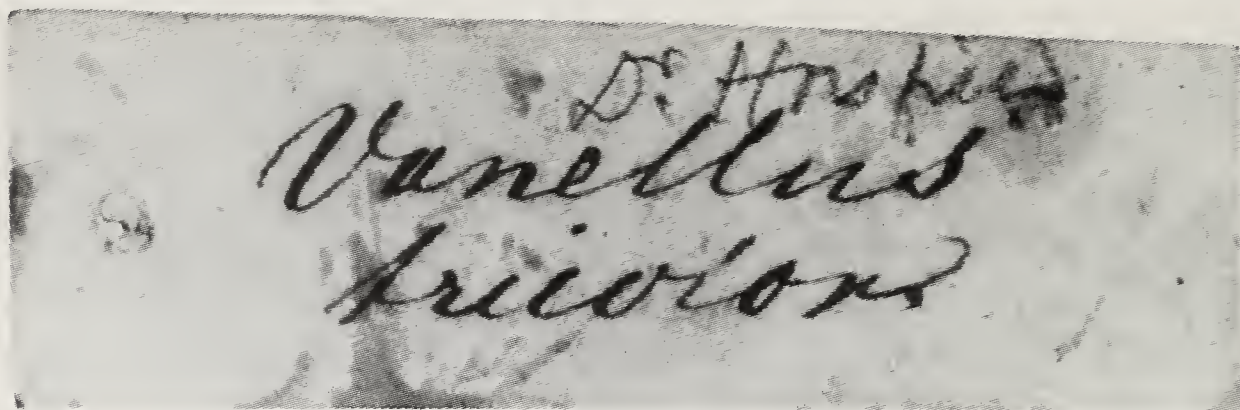 Dr Horsfield
Vanellus
tricolor